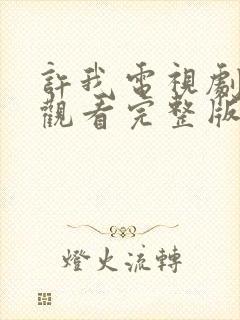 許我電視劇
觀看完整版
燈火流轉